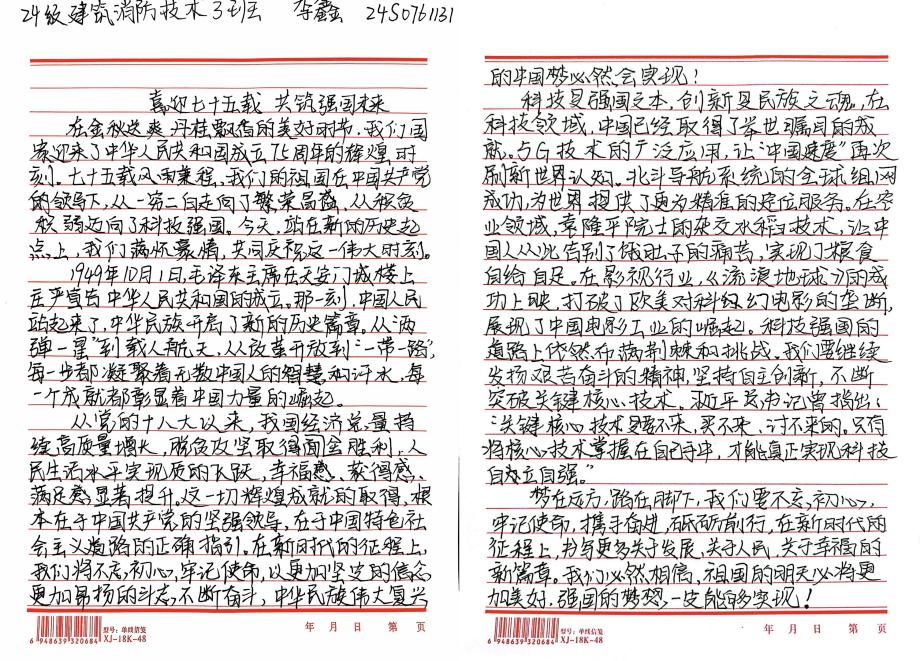 24级建筑消防技术3班 李鑫 24S0761131
喜迎七十五载 共筑强国未来
在金秋送爽、丹桂飘香的美好时节,我们国
家迎来了中华人民共和国成立75周年的辉煌时
刻。七十五载风雨兼程,我们的祖国在中国共产党
的领导下,从一穷二白走向了繁荣昌盛,从积贫
积弱迈向了科技强国。今天,站在新的历史起
点上,我们满怀豪情,共同庆祝这一伟大时刻。
1949年10月1日,毛泽东主席在天安门城楼上
庄严宣告中华人民共和国的成立。那一刻,中国人民
站起来了,中华民族开启了新的历史篇章。从“两
弹一星”到载人航天,从改革开放到“一带一路”,
每一步都凝聚着无数中国人的智慧和汗水,每
一个成就都彰显着中国力量的崛起。
从党的十八大以来,我国经济总量持
续高质量增长,脱贫攻坚取得面全胜利,人
民生活水平实现质的飞跃,幸福感、获得感、
满足感显著提升。这一切辉煌成就的取得,根
本在于中国共产党的坚强领导,在于中国特色社
会主义道路的正确指引。在新时代的征程上,
我们将不忘初心,牢记使命,以更加坚定的信念
更加昂扬的斗志,不断奋斗,中华民族伟大复兴
型号:单线信笺
XJ-18K-48
6 948639 320684
年 月 日 第 页
的中国梦必然会实现!
科技是强国之本,创新是民族之魂,在
科技领域,中国已经取得了举世瞩目的成
就。5G技术的广泛应用,让“中国速度”再次
刷新世界认知。北斗导航系统的全球组网
成功,为世界提供了更为精准的定位服务。在农
业领域,袁隆平院士的杂交水稻技术,让中
国人从此告别了饿肚子的痛苦,实现了粮食
自给自足。在影视行业,《流浪地球》的成
功上映,打破了欧美对科幻电影的垄断,
展现了中国电影工业的崛起。科技强国的
道路上依然布满荆棘和挑战。我们要继续
发扬艰苦奋斗的精神,坚持自立创新,不断
突破关键核心技术。习近平总书记曾指出:
“关键核心技术是要不来,买不来,讨不来的。只有
将核心技术掌握在自己手中,才能真正实现科技
自立自强。”
梦在远方,路在脚下,我们要不忘初心,
牢记使命,携手奋进,砥砺前行,在新时代的
征程上,书写更多关于发展,关于人民,关于幸福的
新篇章。我们必然相信,祖国的明天必将更
加美好,强国的梦想一定能够实现!
型号:单线信笺
XJ-18K-48
6 948639 320684
年 月 日 第 页